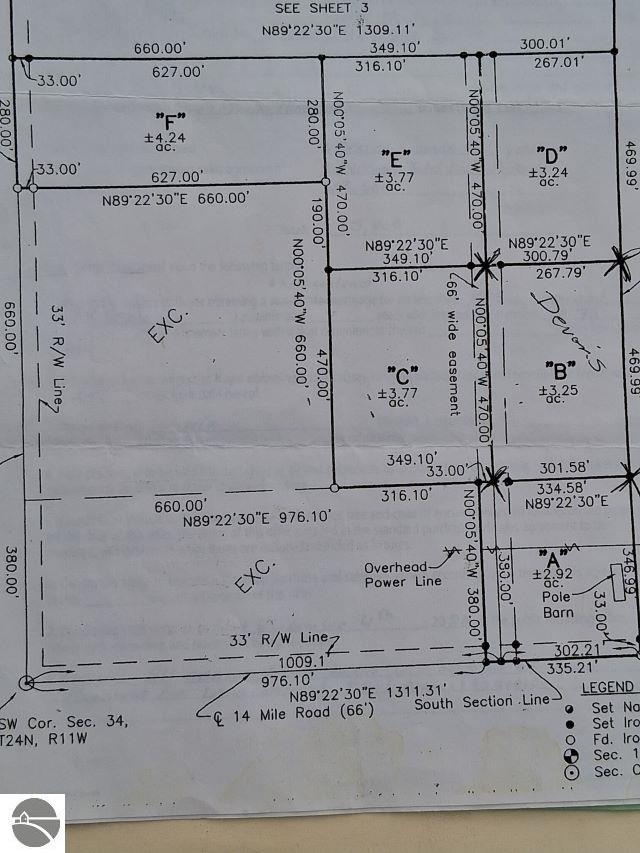 SEE SHEET 3
N89°22'30"E 1309.11'
660.00'
349.10'
300.01'
33.00'
627.00'
316.10'
267.01'
280.00'
"F"
±4.24
ac.
280.00'
N00°05'40"W 470.00'
"E"
±3.77
ac.
N00°05'40"W 470.00'
"D"
±3.24
ac.
469.99'
33.00'
627.00'
N89°22'30"E 660.00'
190.00'
N89°22'30"E
349.10'
316.10'
N89°22'30"E
300.79'
267.79'
660.00'
33' R/W Line
EXC.
N00°05'40"W 660.00'
470.00'
"C"
±3.77
ac.
66' wide easement
N00°05'40"W 470.00'
Devon's
"B"
±3.25
ac.
469.99
349.10'
33.00'
316.10'
301.58'
334.58'
N89°22'30"E
660.00'
N89°22'30"E 976.10'
380.00'
EXC.
Overhead
Power Line
N00°05'40"W 380.00'
380.00'
"A"
±2.92
ac.
Pole
Barn
346.99
33.00'
33' R/W Line
1009.1'
976.10'
N89°22'30"E 1311.31'
302.21
335.21'
SW Cor. Sec. 34,
T24N, R11W
℄ 14 Mile Road (66')
South Section Line
LEGEND
Set Na
Set Iro
Fd. Iro
Sec. 1
Sec. C